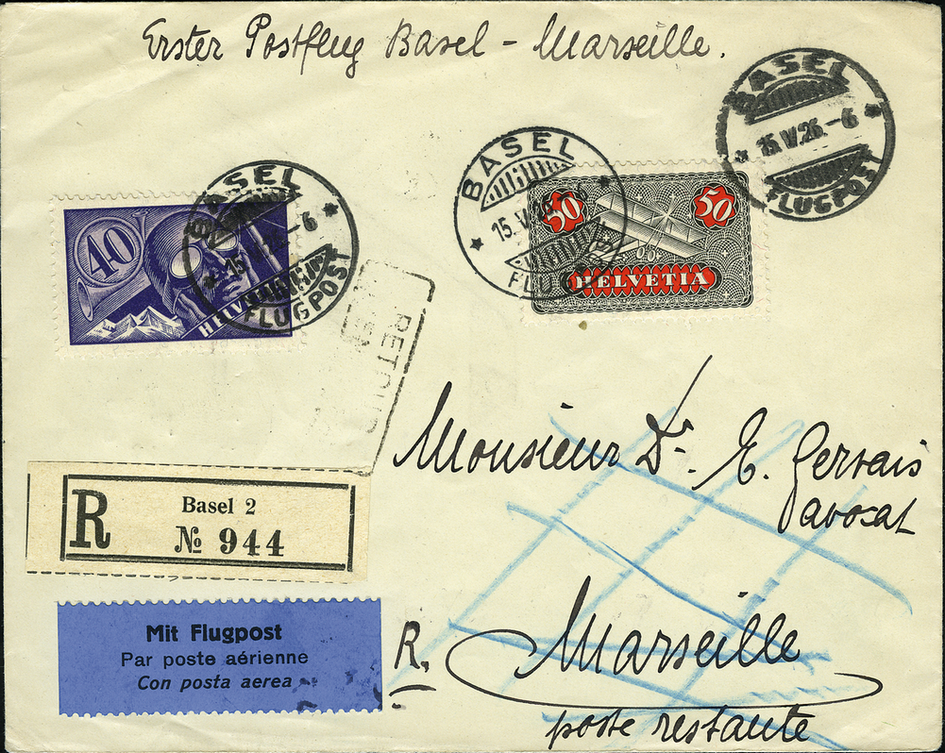 Erster Postflug Basel - Marseille.
BASEL
15.V.26.-6
FLUGPOST
BASEL
15.V.26.-6
FLUGPOST
50 50
HELVETIA
40
HELV
BASEL
FLUGPOST
RETOUR
Monsieur Dr. E. Gervais
avocat
R Basel 2
№ 944
Mit Flugpost
Par poste aérienne
Con posta aerea
R. Marseille
poste restante